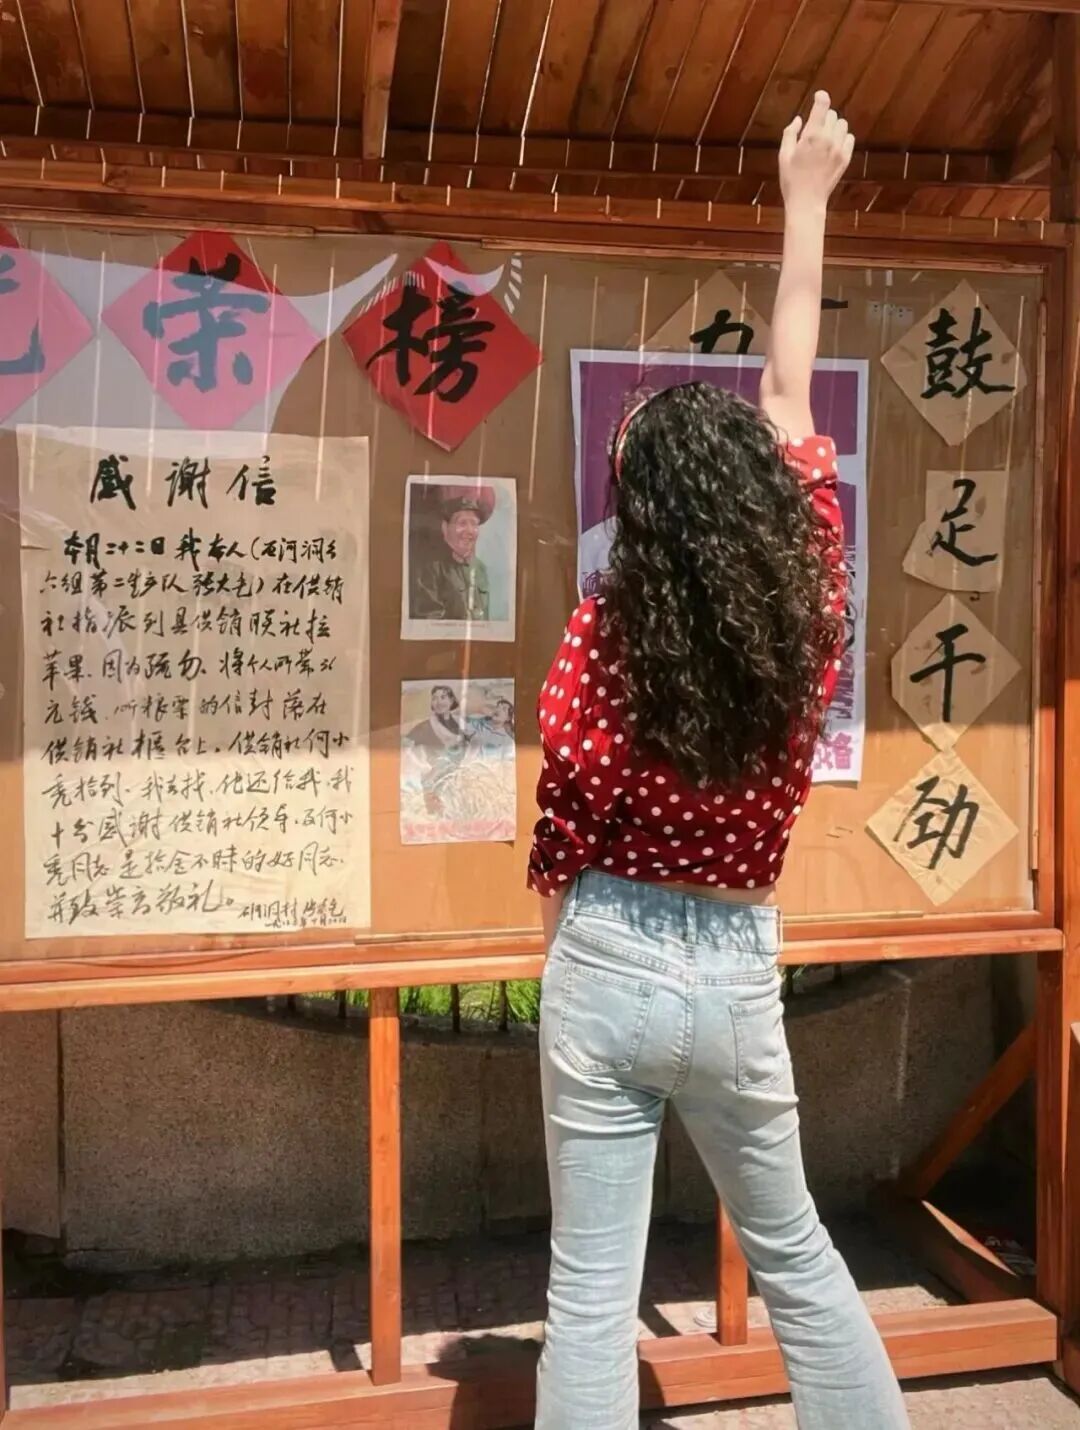 光荣榜
感谢信
本月二十二日我本人(石河洞乡
六组第二生产队张大毛)在供销
社指派到县供销联社拉
苹果,因为疏忽,将个人所带36
元钱,听粮票的信封落在
供销社柜台上。供销社何小
秃拾到,我去找,他还给我,我
十分感谢供销社领导,及何小
秃同志是拾金不昧的好同志,
并致崇高敬礼。
力
鼓
足
干
劲